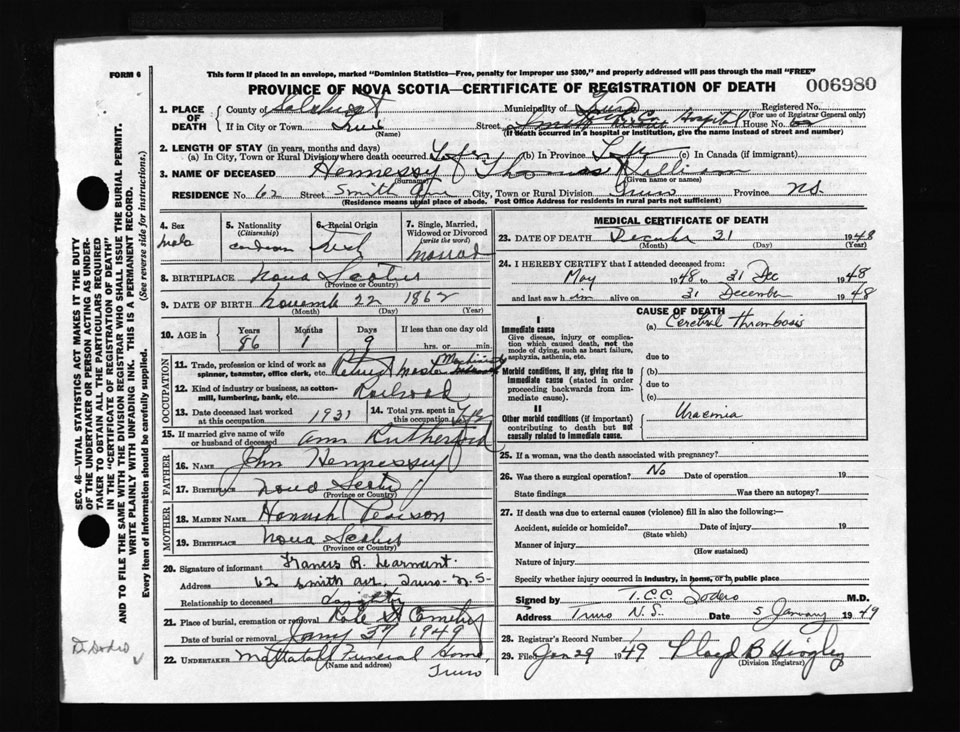 FORM 6
This form if placed in an envelope, marked "Dominion Statistics—Free, penalty for improper use $300," and properly addressed will pass through the mail "FREE"
PROVINCE OF NOVA SCOTIA—CERTIFICATE OF REGISTRATION OF DEATH
006980
1. PLACE OF DEATH
County of Municipality of Truro Registered No.
(For use of Registrar General only)
If in City or Town Truro Street Smith Hospital House No.
(Name) (If death occurred in a hospital or institution, give the name instead of street and number)
2. LENGTH OF STAY (in years, months and days)
(a) In City, Town or Rural Division where death occurred Life (b) In Province Life (c) In Canada (if immigrant)
3. NAME OF DECEASED Hennessy Thomas
(Surname) (Given name or names)
RESIDENCE No. 62 Street Smith Ave City, Town or Rural Division Truro Province N.S.
(Residence means usual place of abode. Post Office Address for residents in rural parts not sufficient)
4. Sex
male
5. Nationality
(Citizenship)
6. Racial Origin
7. Single, Married, Widowed or Divorced
(write the word)
Married
8. BIRTHPLACE Nova Scotia
(Province or Country)
9. DATE OF BIRTH 22 1862
(Month) (Day) (Year)
10. AGE in
Years Months Days If less than one day old
86 1 9 hrs. or min.
OCCUPATION
11. Trade, profession or kind of work as spinner, teamster, office clerk, etc. Master
12. Kind of industry or business, as cotton-mill, lumbering, bank, etc. Railroad
13. Date deceased last worked at this occupation 1931
14. Total yrs. spent in this occupation
15. If married give name of wife or husband of deceased Ann Rutherford
FATHER
16. NAME John Hennessy
17. BIRTHPLACE Nova Scotia
(Province or Country)
MOTHER
18. MAIDEN NAME Hannah
19. BIRTHPLACE Nova Scotia
(Province or Country)
20. Signature of informant Francis R. Learment
Address 62 Smith ave. Truro N.S.
Relationship to deceased
21. Place of burial, cremation or removal
Date of burial or removal 1949
22. UNDERTAKER Mattatall Funeral Home,
(Name and address)
Truro
MEDICAL CERTIFICATE OF DEATH
23. DATE OF DEATH December 31 1948
(Month) (Day) (Year)
24. I HEREBY CERTIFY that I attended deceased from:
May 1948 to 31 Dec 1948
and last saw him alive on 31 December 1948
CAUSE OF DEATH
I
Immediate cause
Give disease, injury or complication which caused death, not the mode of dying, such as heart failure, asphyxia, asthenia, etc.
(a) Cerebral Thrombosis
due to
Morbid conditions, if any, giving rise to immediate cause (stated in order proceeding backwards from immediate cause).
(b)
due to
(c)
II
Other morbid conditions (if important) contributing to death but not causally related to immediate cause.
Uraemia
25. If a woman, was the death associated with pregnancy?
26. Was there a surgical operation? No Date of operation 19
State findings Was there an autopsy?
27. If death was due to external causes (violence) fill in also the following:—
Accident, suicide or homicide? Date of injury 19
(State which)
Manner of injury
(How sustained)
Nature of injury
Specify whether injury occurred in industry, in home, or in public place
Signed by T.C.C. Sodero M.D.
Address Truro N.S. Date 5 January 1949
28. Registrar's Record Number
29. Filed Jan 29 1949 Lloyd B
(Division Registrar)
SEC. 46—VITAL STATISTICS ACT MAKES IT THE DUTY
OF THE UNDERTAKER OR PERSON ACTING AS UNDER-
TAKER TO OBTAIN ALL THE PARTICULARS REQUIRED
IN THE "CERTIFICATE OF REGISTRATION OF DEATH"
AND TO FILE THE SAME WITH THE DIVISION REGISTRAR WHO SHALL ISSUE THE BURIAL PERMIT.
WRITE PLAINLY WITH UNFADING INK. THIS IS A PERMANENT RECORD.
Every item of information should be carefully supplied. (See reverse side for instructions.)
Dr Sodero